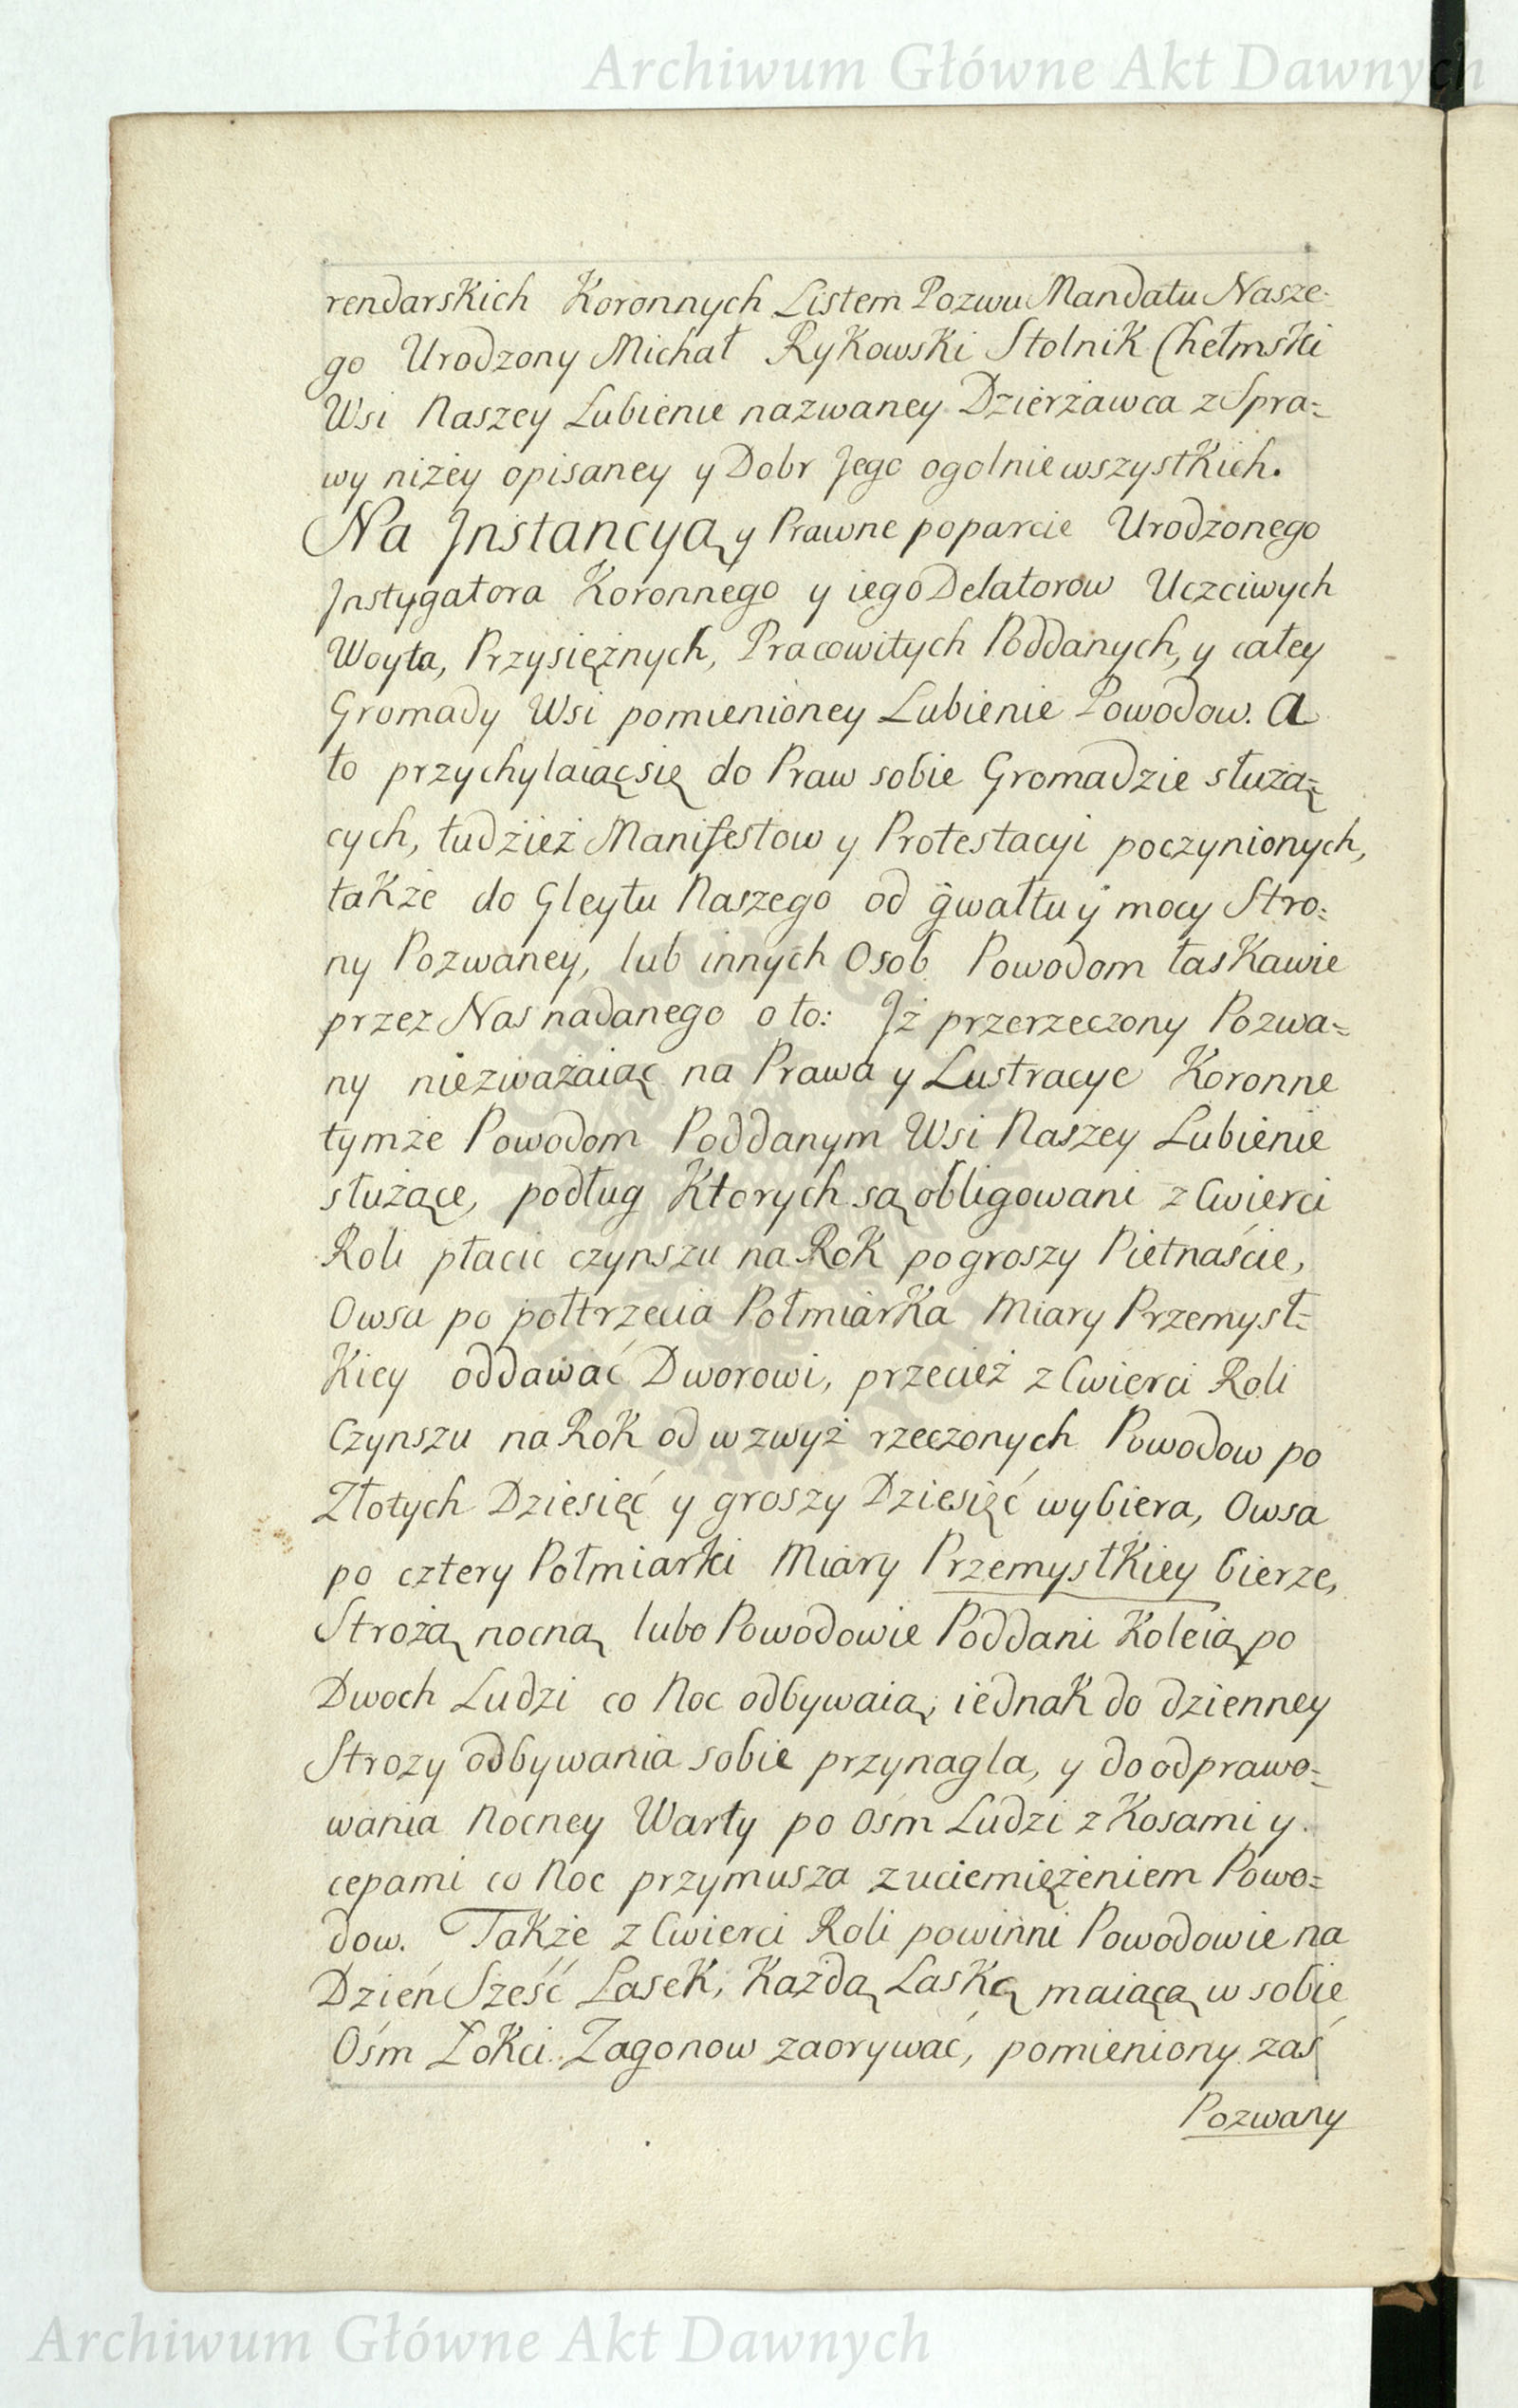 Archiwum Główne Akt Dawnych
rendarskich Koronnych Listem Pozwu Mandatu Nasze-
go Urodzony Michał Rykowski Stolnik Chełmski
Wsi Naszey Lubienie nazwaney Dzierżawca z Spra=
wy niżey opisaney y Dobr Jego ogolnie wszystkich.
Na Jnstancyą y Prawne poparcie Urodzonego
Jnstygatora Koronnego y iego Delatorow Uczciwych
Woyta, Przysiężnych, Pracowitych Poddanych, y całey
Gromady Wsi pomienioney Lubienie Powodow. A
to przychylaiąc się do Praw sobie Gromadzie służą=
cych, tudzież Manifestow y Protestacyi poczynionych,
także do Gleytu Naszego od gwałtu y mocy Stro=
ny Pozwaney, lub innych Osob Powodom łaskawie
przez Nas nadanego o to: Jż przerzeczony Pozwa=
ny niezważaiąc na Prawa y Lustracye Koronne
tymże Powodom Poddanym Wsi Naszey Lubienie
służące, podług Ktorych są obligowani z Cwierci
Roli płacic czynszu na Rok po groszy Pietnaście,
Owsa po połtrzecia Połmiarka Miary Przemysł=
Kiey oddawać Dworowi, przecież z Cwierci Roli
Czynszu na Rok od wzwyż rzeczonych Powodow po
Złotych Dziesięć y groszy Dziesięć wybiera, Owsa
po cztery Połmiarki Miary Przemysłkiey bierze,
Strożą nocną lubo Powodowie Poddani Koleią po
Dwoch Ludzi co Noc odbywaią, iednak do dzienney
Strozy odbywania sobie przynagla, y do odprawo=
wania Nocney Warty po Ośm Ludzi z Kosami y
cepami co Noc przymusza z uciemiężeniem Powo=
dow. Także z Cwierci Roli powinni Powodowie na
Dzień Sześć Lasek, Każdą Laskę maiącą w sobie
Ośm Łokci Zagonow zaorywać, pomieniony zaś
Pozwany
Archiwum Główne Akt Dawnych